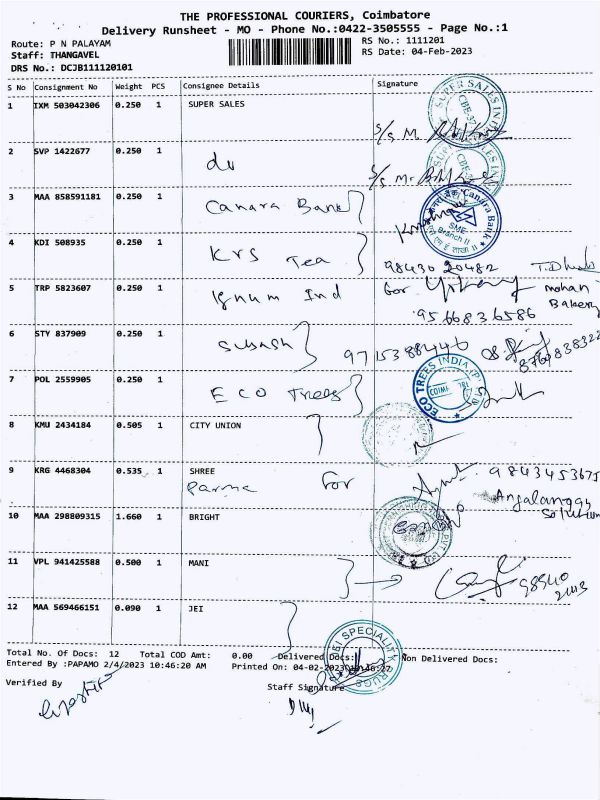 THE PROFESSIONAL COURIERS, Coimbatore
Delivery Runsheet - MO - Phone No.:0422-3505555 - Page No.:1
Route: P N PALAYAM
RS No.: 1111201
Staff: THANGAVEL
RS Date: 04-Feb-2023
DRS No.: DCJB111120101
S No Consignment No Weight PCS Consignee Details Signature
1 IXM 503042306 0.250 1 SUPER SALES
2 SVP 1422677 0.250 1
3 MAA 858591181 0.250 1 Canara Bank
4 KDI 508935 0.250 1 KRS Tea
98430 20482
5 TRP 5823607 0.250 1 Ignum Ind for
mohan
Bakery
9566836586
6 STY 837909 0.250 1 Subash 9715388446
8760838322
7 POL 2559905 0.250 1 ECO Trees
8 KMU 2434184 0.505 1 CITY UNION
9 KRG 4468304 0.535 1 SHREE
Parma for 9843453675
10 MAA 298809315 1.660 1 BRIGHT
11 VPL 941425588 0.500 1 MANI
12 MAA 569466151 0.090 1 JEI
Total No. Of Docs: 12 Total COD Amt: 0.00 Delivered Docs: Non Delivered Docs:
Entered By :PAPAMO 2/4/2023 10:46:20 AM Printed On: 04-02-2023
Verified By
Staff Signature
SUPER SALES
Canara Bank
SME
Branch II
ECO TREES INDIA (P)
SPECIALITY DRUGS